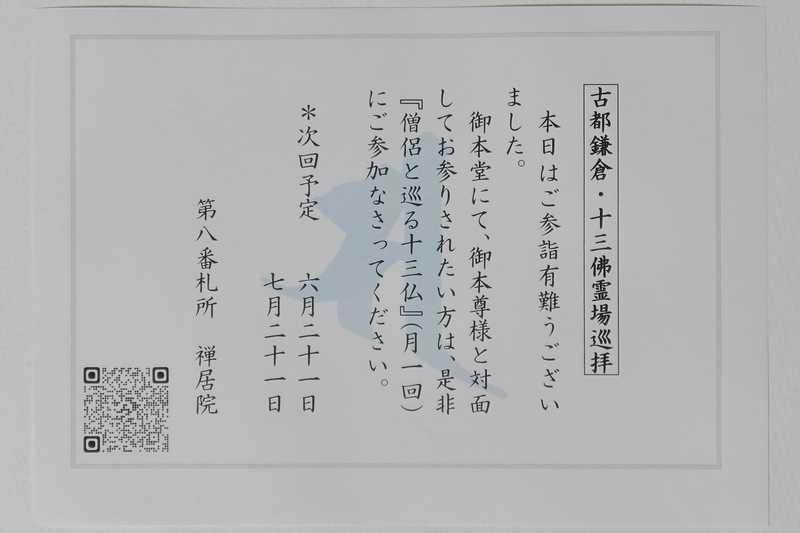 古都鎌倉・十三佛霊場巡拝
本日はご参詣有難うござい
ました。
御本堂にて、御本尊様と対面
してお参りされたい方は、是非
『僧侶と巡る十三仏』(月一回)
にご参加なさってください。
＊次回予定　六月二十一日
七月二十一日
第八番札所　禅居院